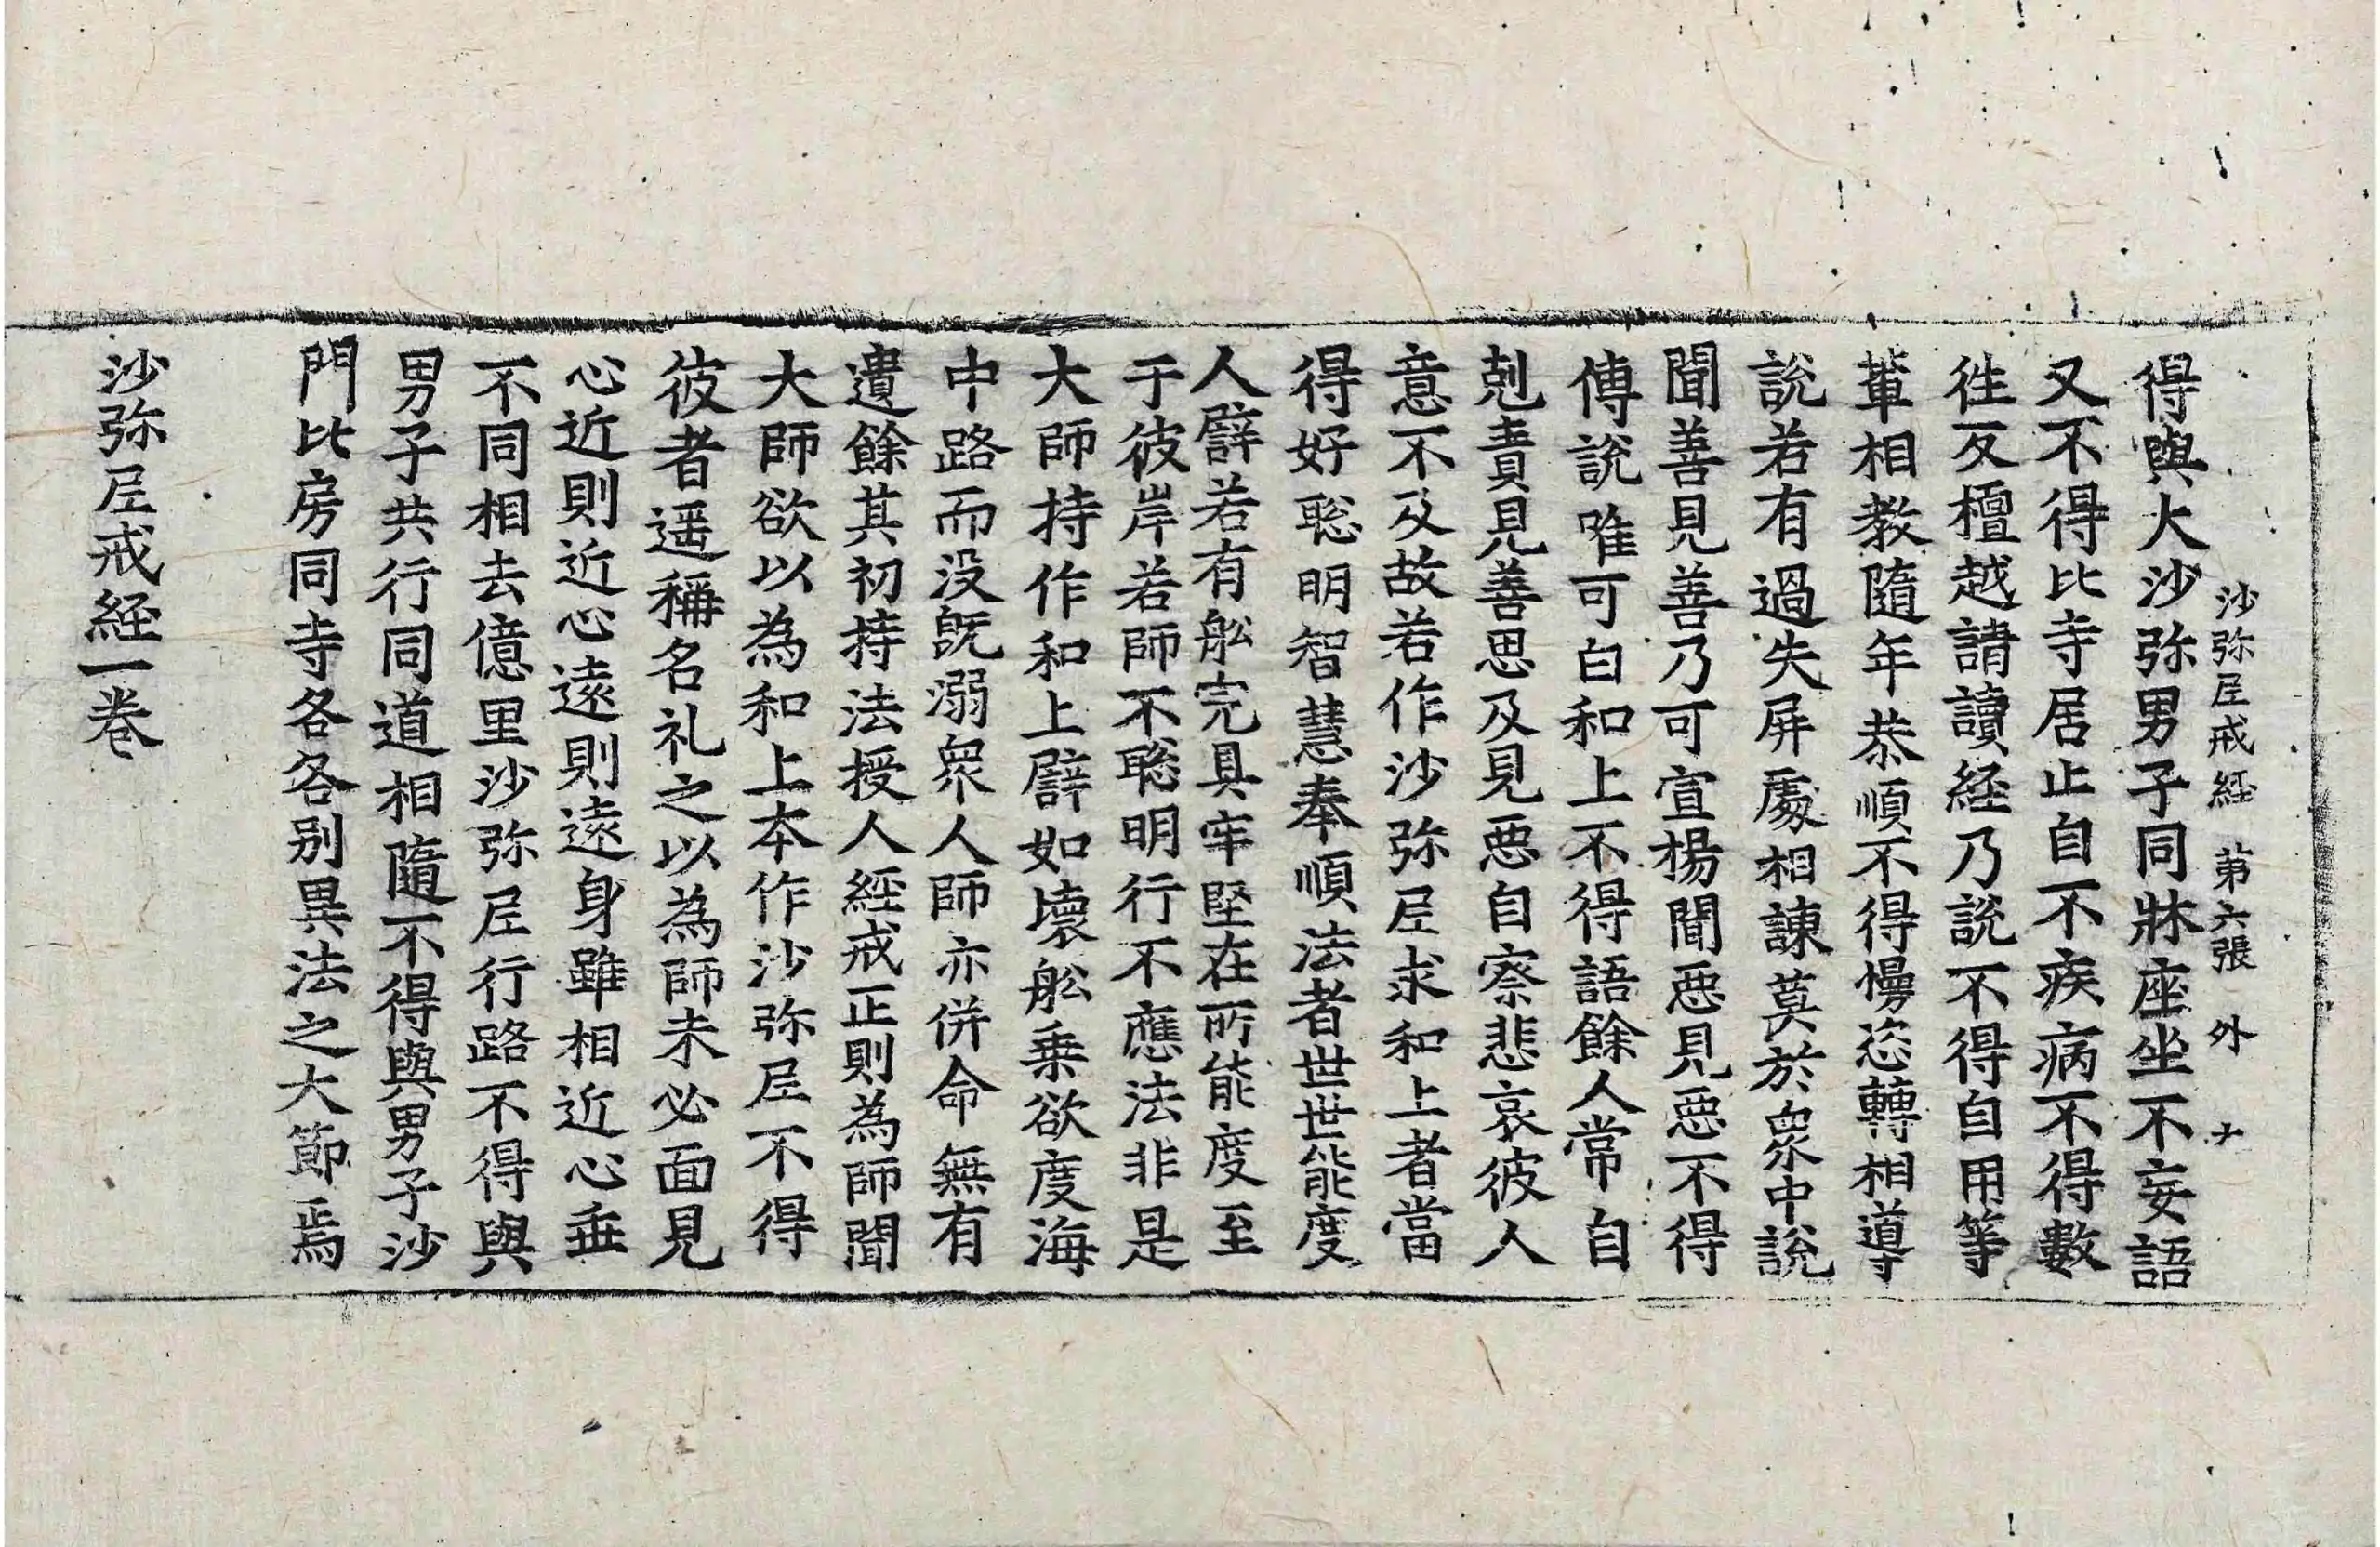 沙弥尼戒経 第六張 外 ナ
得與大沙弥男子同牀座坐不妄語
又不得比寺居止自不疾病不得數
徃反檀越請讀経乃說不得自用等
軰相教隨年恭順不得慢恣轉相導
說若有過失屏處相諫莫於衆中說
聞善見善乃可宣揚聞惡見惡不得
傳說唯可白和上不得語餘人常自
剋責見善思及見惡自察悲哀彼人
意不及故若作沙弥尼求和上者當
得好聡明智慧奉順法者世世能度
人譬若有舩完具牢堅在所能度至
于彼岸若師不聡明行不應法非是
大師持作和上譬如壞舩乗欲度海
中路而没旣溺衆人師亦併命無有
遺餘其初持法授人經戒正則為師聞
大師欲以為和上本作沙弥尼不得
彼者遥稱名礼之以為師未必面見
心近則近心逺則逺身雖相近心乖
不同相去億里沙弥尼行路不得與
男子共行同道相隨不得與男子沙
門比房同寺各各別異法之大節焉
沙弥尼戒経一卷